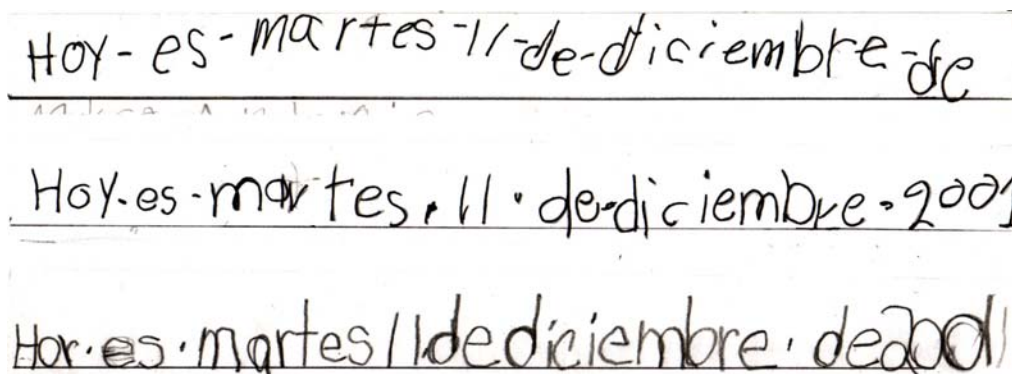 Hoy-es-martes-11-de-diciembre-de
Hoy.es-martes.11.de-diciembre.2001
Hor.es.martes11dediciembre.de2001